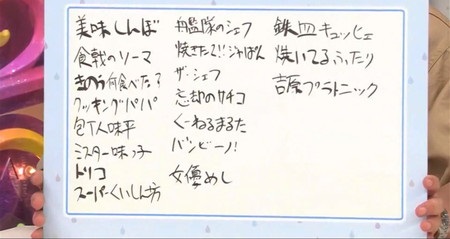 美味しんぼ
食戟のソーマ
きのう何食べた?
クッキングパパ
包丁人味平
ミスター味っ子
トリコ
スーパーくいしん坊
艦隊のシェフ
焼きたて!!ジャぱん
ザ・シェフ
忘却のサチコ
くーねるまるた
バンビ〜ノ!
女優めし
鉄皿キュッヒェ
焼いてるふたり
吉原プラトニック